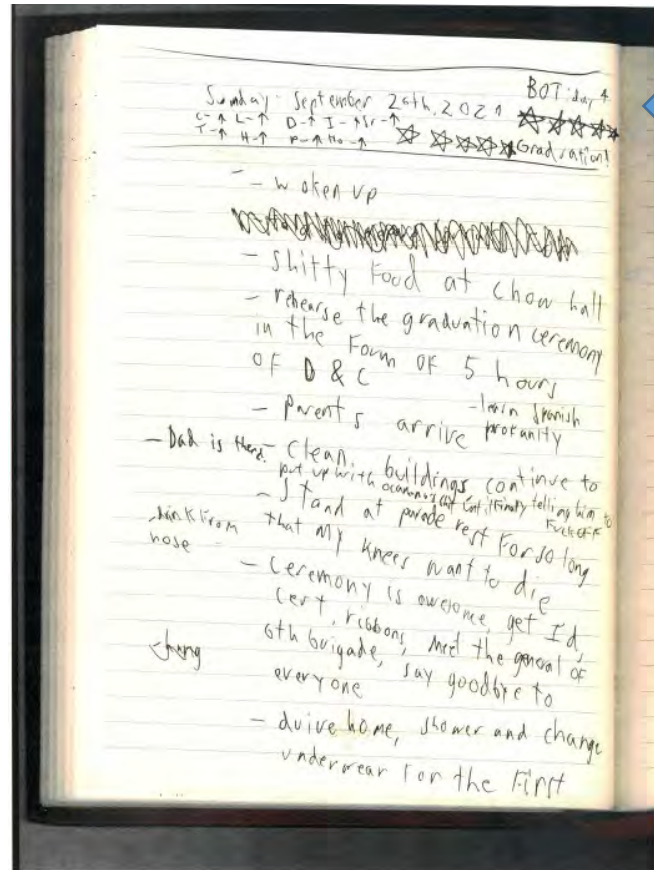 BOT: day 4
Sunday - September 26th, 2021
C-↑ L-↑ D-↑ I-↑ Sr-↑
T-↑ H-↑ P-↑ Ho-↑ Graduation!
- woken up
- shitty Food at chow hall
- rehearse the graduation ceremony
in the Form OF 5 hours
OF D & C
- Parents arrive
- learn Spanish
profanity
- Dad is there.
- Clean buildings, continue to
put up with until finally telling him to
Fuck off
- Stand at parade rest For so long
that my knees want to die
- drink From
hose
- Ceremony is awesome, get Id,
cert, ribbons, meet the general of
6th brigade, say goodbye to
everyone
- drive home, shower and change
underwear for the First